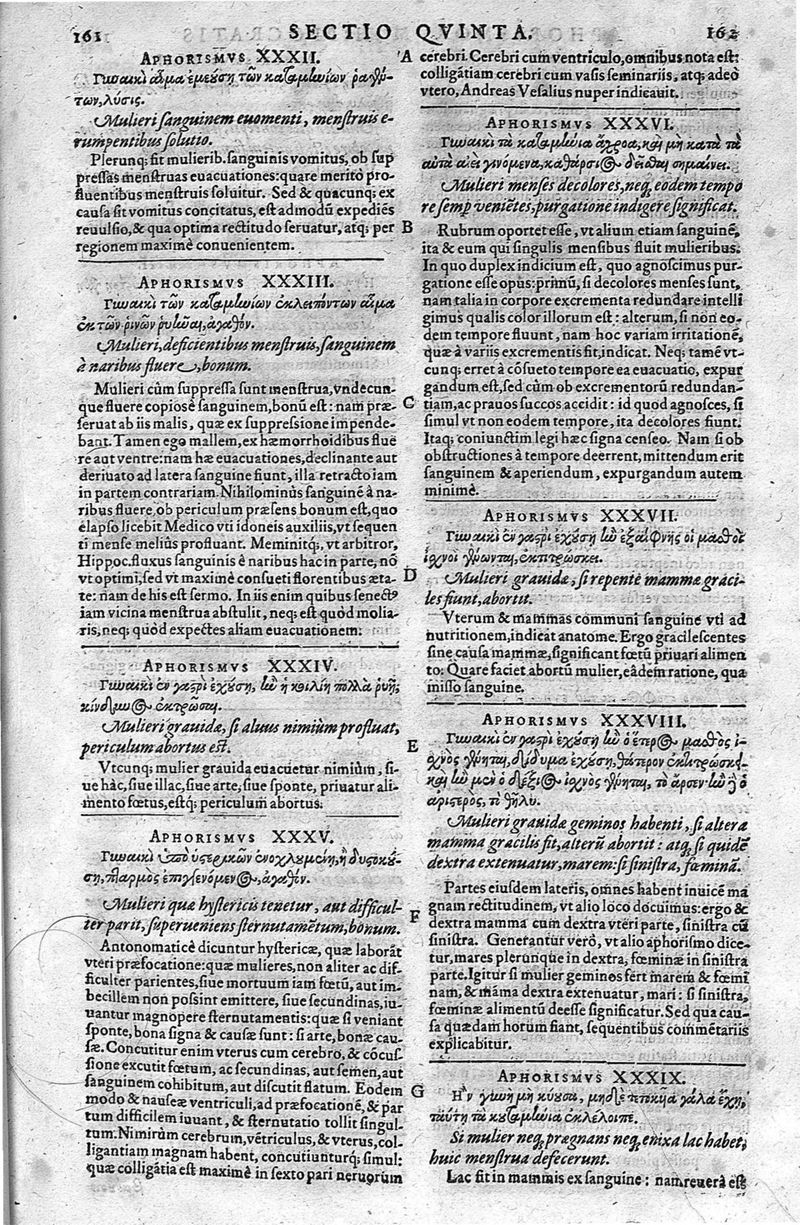 161
SECTIO QVINTA.
162
APHORISMVS XXXII.
Γυναικὶ αἷμα ἐμεύση τῶν καταμηνίων ῥαγέν-
των, λύσις.
Mulieri sanguinem euomenti, menstruis e-
rumpentibus solutio.
Plerunq; fit mulierib. sanguinis vomitus, ob sup
pressas menstruas euacuationes: quare merito pro-
fluentibus menstruis soluitur. Sed & quacunq; ex
causa sit vomitus concitatus, est admodũ expediẽs
reuulsio, & qua optima rectitudo seruatur, atq; per
regionem maximè conuenientem.
APHORISMVS XXXIII.
Γυναικὶ τῶν καταμηνίων ἐκλειπόντων αἷμα
ἐκ τῶν ῥινῶν ῥυῆναι, ἀγαθόν.
Mulieri, deficientibus menstruis, sanguinem
è naribus fluere, bonum.
Mulieri cùm suppressa sunt menstrua, vndecun-
que fluere copiosè sanguinem, bonũ est: nam præ-
seruat ab iis malis, quæ ex suppressione impende-
bant. Tamen ego mallem, ex hæmorrhoidibus flue
re aut ventre: nam hæ euacuationes, declinante aut
deriuato ad latera sanguine fiunt, illa retracto iam
in partem contrariam. Nihilominùs sanguinẽ à na-
ribus fluere, ob periculum præsens bonum est, quo
elapso licebit Medico vti idoneis auxiliis, vt sequen
ti mense meliùs profluant. Meminitq́;, vt arbitror,
Hippoc. fluxus sanguinis è naribus hac in parte, nõ
vt optimi, sed vt maximè consueti florentibus æta-
te: nam de his est sermo. In iis enim quibus senectꝰ
iam vicina menstrua abstulit, neq; est quòd molia-
ris, neq; quòd expectes aliam euacuationem.
APHORISMVS XXXIV.
Γυναικὶ ἐν γαστρὶ ἐχούση, ἢν ἡ κοιλίη πολλὰ ῥυῇ,
κίνδυνος ἐκτρῶσαι.
Mulieri grauidæ, si aluus nimiùm profluat,
periculum abortus est.
Vtcunq; mulier grauida euacuetur nimiùm, si-
ue hâc, siue illac, siue arte, siue sponte, priuatur ali-
mento fœtus, estq́; periculum abortus.
APHORISMVS XXXV.
Γυναικὶ ὑπὸ ὑστερικῶν ἐνοχλουμένη, ἢ δυστοκεύ-
ση, πταρμὸς ἐπιγενόμενος, ἀγαθόν.
Mulieri quæ hystericis tenetur, aut difficul-
ter parit, superueniens sternutamẽtum, bonum.
Antonomaticè dicuntur hystericæ, quæ laborãt
vteri præfocatione: quæ mulieres, non aliter ac dif-
ficulter parientes, siue mortuum iam fœtũ, aut im-
becillem non possint emittere, siue secundinas, iu-
uantur magnopere sternutamentis: quæ si veniant
sponte, bona signa & causæ sunt: si arte, bonæ cau-
sæ. Concutitur enim vterus cum cerebro, & cõcus-
sione excutit fœtum, ac secundinas, aut semen, aut
sanguinem cohibitum, aut discutit flatum. Eodem
modo & nauseæ ventriculi, ad præfocationẽ, & par
tum difficilem iuuant, & sternutatio tollit singul-
tum. Nimirùm cerebrum, vẽtriculus, & vterus, col-
ligantiam magnam habent, concutiunturq́; simul:
quæ colligãtia est maximè in sexto pari neruorum
A
B
C
D
E
F
G
cerebri. Cerebri cum ventriculo, omnibus nota est:
colligãtiam cerebri cum vasis seminariis, atq; adeo
vtero, Andreas Vesalius nuper indicauit.
APHORISMVS XXXVI.
Γυναικὶ τὰ καταμήνια ἄχροα, καὶ μὴ κατὰ τὰ
αὐτὰ αἰεὶ γινόμενα, καθάρσιος δεῖσθαι σημαίνει.
Mulieri menses decolores, neq; eodem tempo
re semp veniẽtes, purgatione indigere significat.
Rubrum oportet esse, vt alium etiam sanguinẽ,
ita & eum qui singulis mensibus fluit mulieribus.
In quo duplex indicium est, quo agnoscimus pur-
gatione esse opus: primũ, si decolores menses sunt,
nam talia in corpore excrementa redundare intelli
gimus qualis color illorum est: alterum, si non eo-
dem tempore fluunt, nam hoc variam irritationẽ,
quæ à variis excrementis fit, indicat. Neq; tamẽ vt-
cunq; erret à cõsueto tempore ea euacuatio, expur
gandum est, sed cùm ob excrementorũ redundan-
tiam, ac prauos succos accidit: id quod agnosces, si
simul vt non eodem tempore, ita decolores fiunt.
Itaq; coniunctim legi hæc signa censeo. Nam si ob
obstructiones à tempore deerrent, mittendum erit
sanguinem & aperiendum, expurgandum autem
minimè.
APHORISMVS XXXVII.
Γυναικὶ ἐν γαστρὶ ἐχούση ἢν ἐξαίφνης οἱ μασθοὶ
ἰσχνοὶ γένωνται, ἐκτιτρώσκει.
Mulieri grauidæ, si repentè mammæ graci-
les fiunt, abortit.
Vterum & mammas communi sanguine vti ad
nutritionem, indicat anatome. Ergo gracilescentes
sine causa mammæ, significant fœtũ priuari alimen
to. Quare faciet abortũ mulier, eâdem ratione, qua
misso sanguine.
APHORISMVS XXXVIII.
Γυναικὶ ἐν γαστρὶ ἐχούση ἢν ὁ ἕτερος μασθὸς ἰ-
σχνὸς γένηται, δίδυμα ἐχούση, θάτερον ἐκτιτρώσκει.
καὶ ἢν μὲν ὁ δεξιὸς ἰσχνὸς γένηται, τὸ ἄρσεν· ἢν δὲ ὁ
ἀριστερὸς, τὸ θῆλυ.
Mulieri grauidæ geminos habenti, si altera
mamma gracilis fit, alterũ abortit: atq; si quidẽ
dextra extenuatur, marem: si sinistra, fœminã.
Partes eiusdem lateris, omnes habent inuicẽ ma
gnam rectitudinem, vt alio loco docuimus: ergo &
dextra mamma cum dextra vteri parte, sinistra cũ
sinistra. Generantur verò, vt alio aphorismo dice-
tur, mares plerunque in dextra, fœminæ in sinistra
parte. Igitur si mulier geminos fert marem & fœmi
nam, & mãma dextra extenuatur, mari: si sinistra,
fœminæ alimentũ deesse significatur. Sed qua cau-
sa quædam horum fiant, sequentibus commẽtariis
explicabitur.
APHORISMVS XXXIX.
Ἢν γυνὴ μὴ κύουσα, μηδὲ τετοκυῖα γάλα ἔχῃ,
ταύτῃ τὰ καταμήνια ἐκλέλοιπε.
Si mulier neq; prægnans neq; enixa lac habet,
huic menstrua defecerunt.
Lac fit in mammis ex sanguine: nam reuerà est